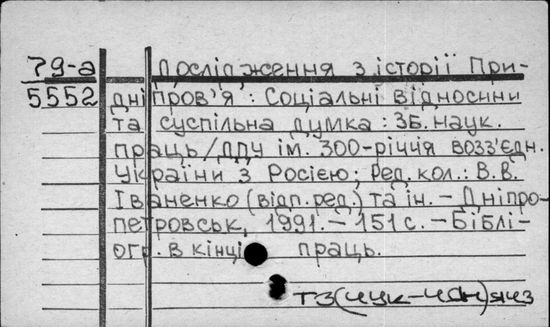 79-а Дослідження з історії При-
5552 дніпров'я : Соціальні відносини
та суспільна думка : Зб. наук.
праць/ДДУ ім. 300-річчя возз'єдн.
України з Росією; Ред. кол.: В.В.
Іваненко (відп. ред.) та ін. – Дніпро-
петровськ, 1991. – 151 с. – Біблі-
огр. в кінці праць.
ТЗ(4УК-4